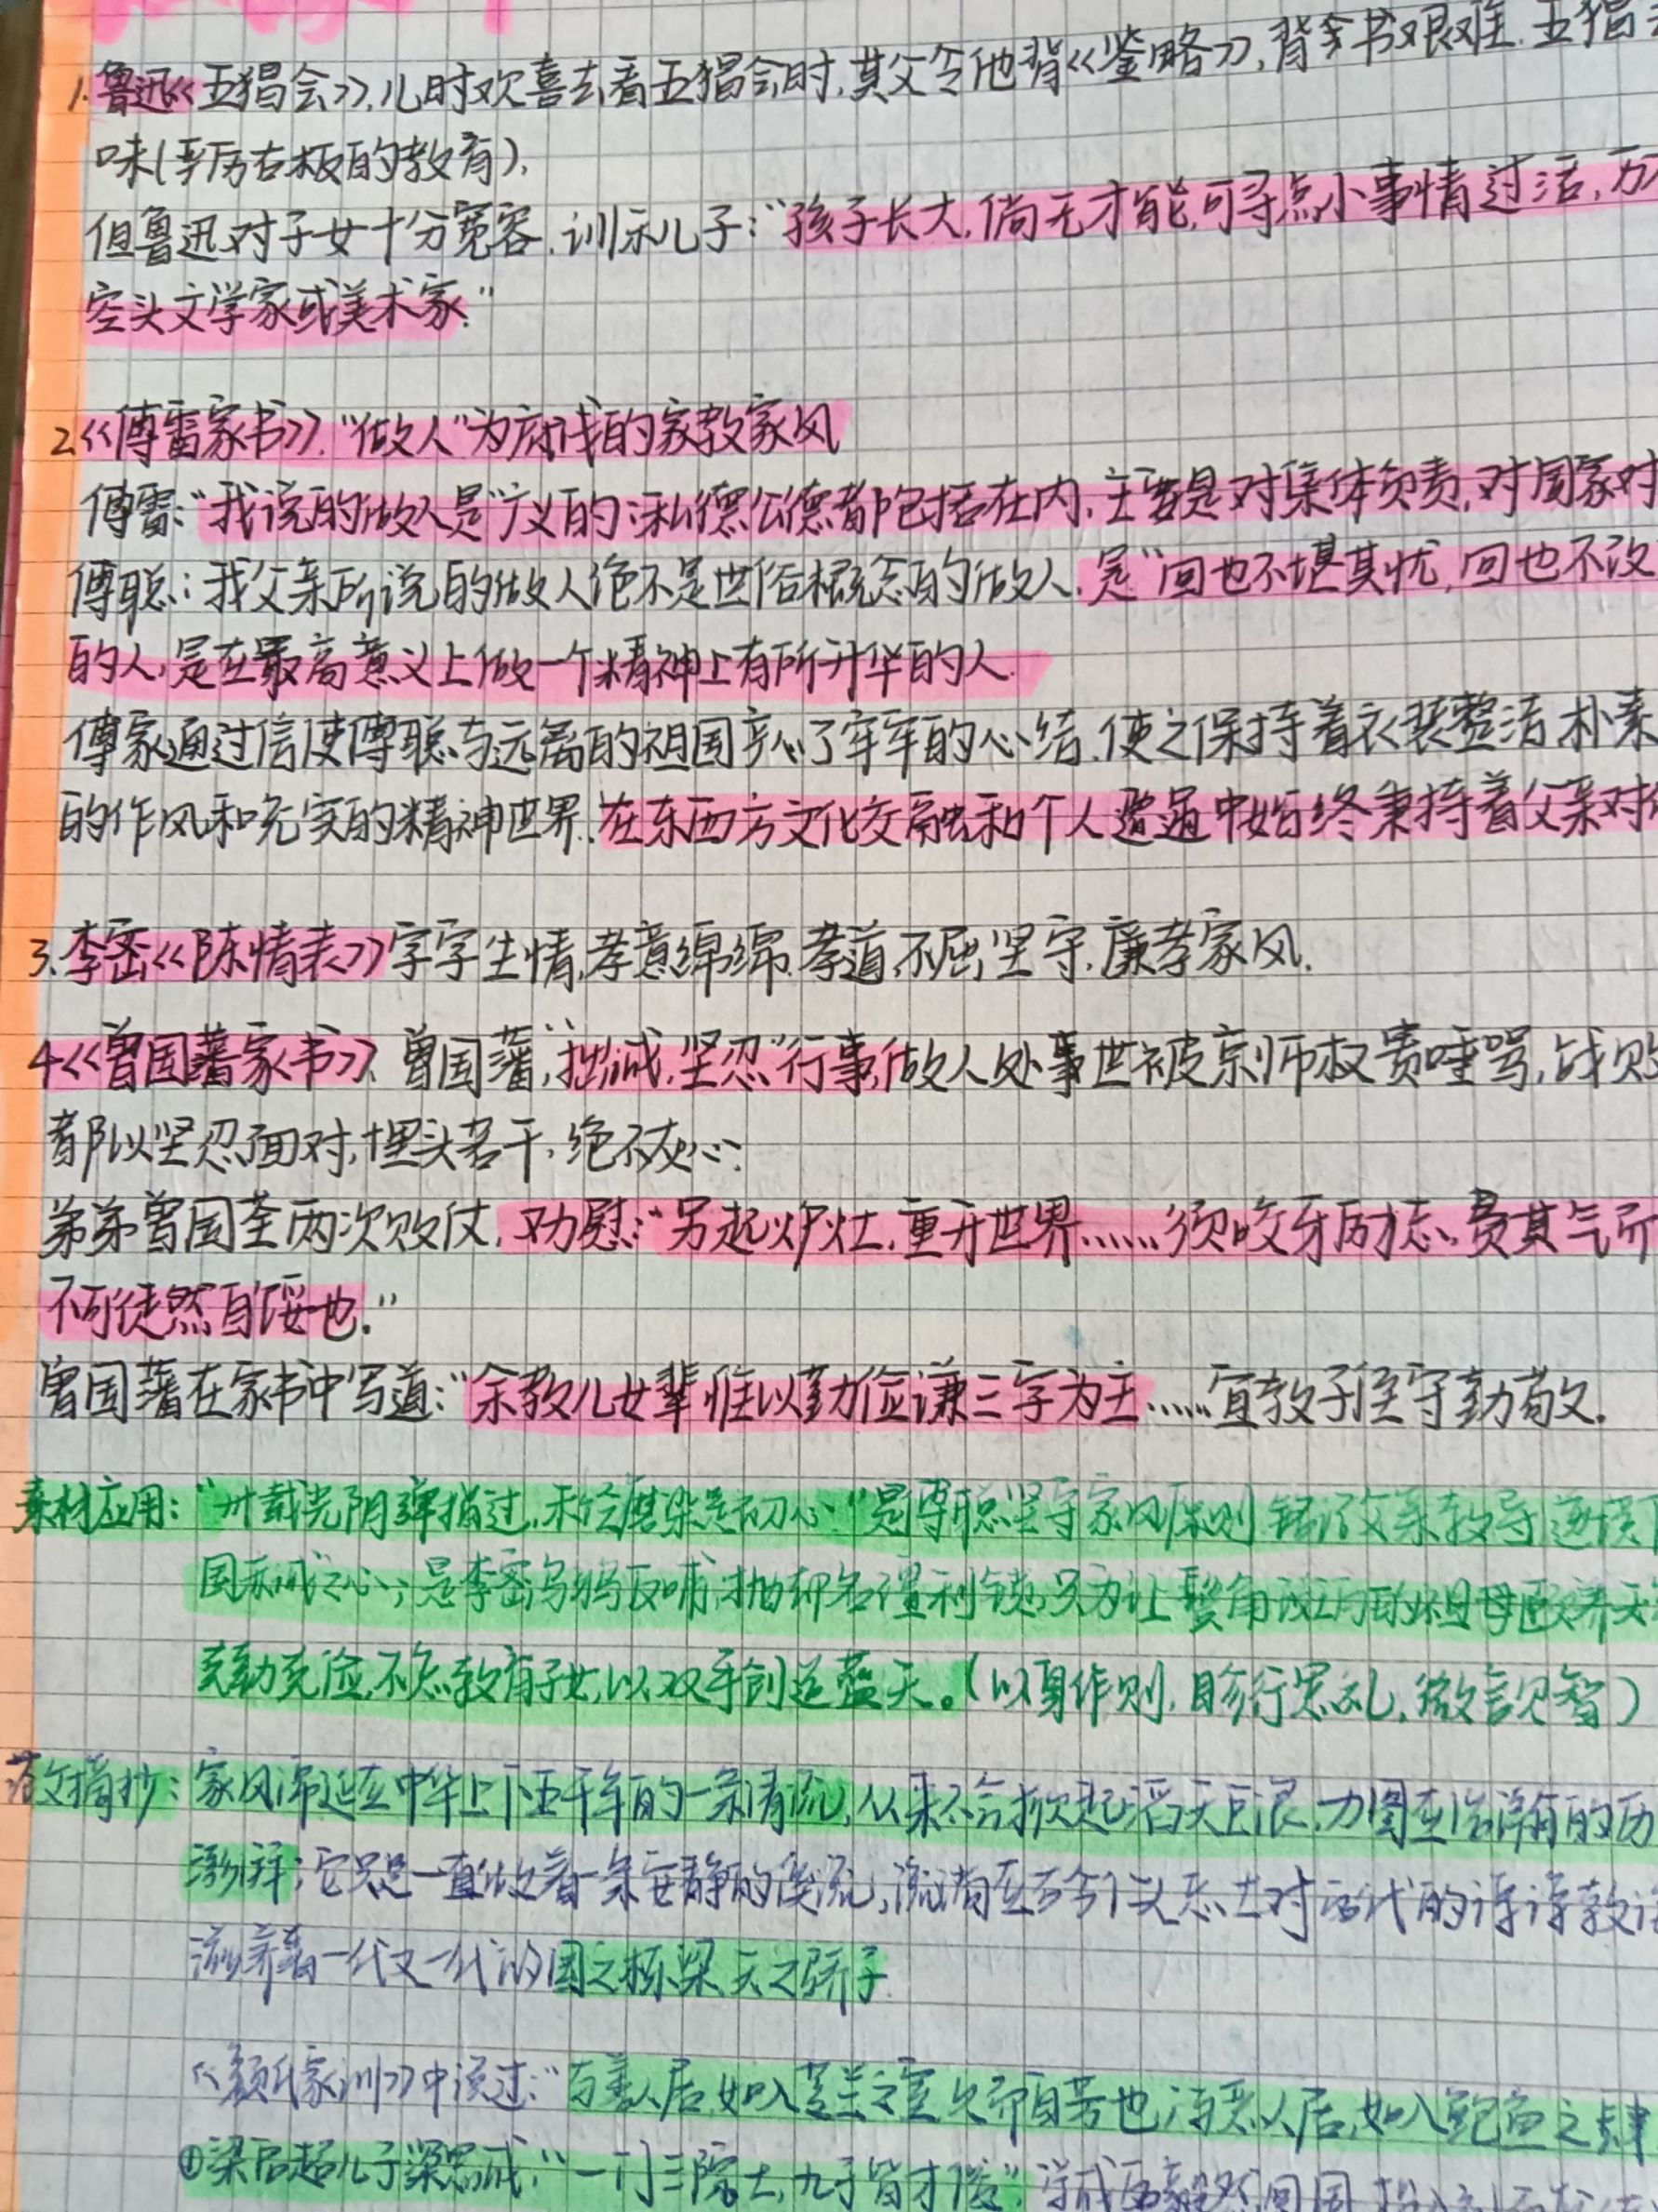 1.鲁迅《五猖会》,儿时欢喜去看五猖会时,其父令他背《鉴略》,背书艰难.五猖
味(严厉古板的教育),
但鲁迅对子女十分宽容.训示儿子:“孩子长大,倘无才能,可寻点小事情过活,万
空头文学家或美术家.”
2.《傅雷家书》.“做人”为底线的家教家风
傅雷:“我说的做人是广义的:私德公德都包括在内.主要是对集体负责,对国家对
傅聪:我父亲所说的做人绝不是世俗概念的做人.是“回也不堪其忧,回也不改
的人,是在最高意义上做一个精神上有所升华的人.
傅家通过信使傅聪与远离的祖国产心了牢牢的心结.使之保持着衣装整洁.朴素
的作风和充实的精神世界.在东西方文化交融和个人遭遇中始终秉持着父亲对
3.李密《陈情表》字字生情,孝意绵绵.孝道不屈坚守.廉孝家风.
4《曾国藩家书》.曾国藩,“拙诚,坚忍”行事,做人处事世被京师权贵唾骂,战败
都以坚忍面对,埋头苦干,绝不灰心:
弟弟曾国荃两次败仗,劝慰:“另起炉灶,重开世界……须咬牙励志,费其气所
不可徒然自馁也.”
曾国藩在家书中写道:“余教儿女辈惟以勤俭谦三字为主……宜教子侄守勤敬.
素材应用:“卅载光阴弹指过,未应磨染是初心.”是傅聪坚守家风原则,铭记父亲教导
国赤诚之心;是李密乌鸦反哺,抛却名缰利锁,只为让鬓角斑斑的祖母颐养天
克勤克俭,不忘教育子女,以双手创造蓝天。(以身作则,日常行 礼,微言见智)
范文摘抄:家风绵延在中华上下五千年的一条清流,从来不会掀起滔天巨浪,力图在 的历
澎湃;它只是一直做着一条安静的溪流,流淌在古今 对后代的谆谆教
滋养着一代又一代的国之栋梁,天之骄子
《颜氏家训》中说过:“与善人居,如入芝兰之室,久而自芳也;与恶人居,如入鲍鱼之肆
①梁启超儿子梁思成,“一门三院士,九子皆才俊”,学成后毅然回国